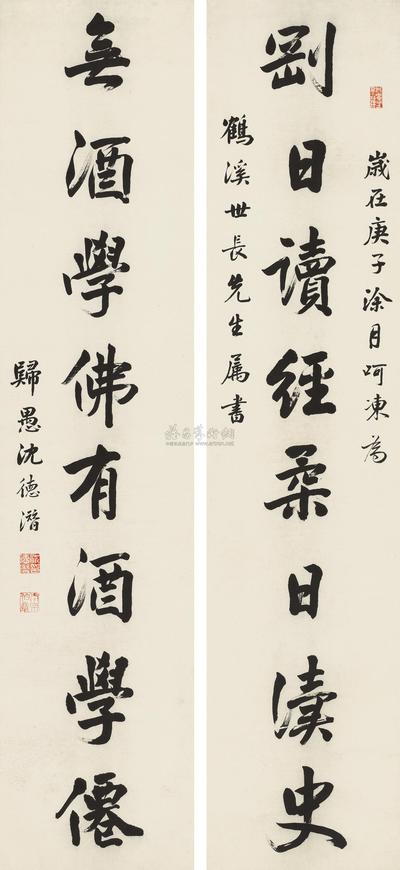 歲在庚子涂月呵凍為
剛日讀經柔日讀史
鶴溪世長先生属書
無酒學佛有酒學僊
歸愚沈德潛